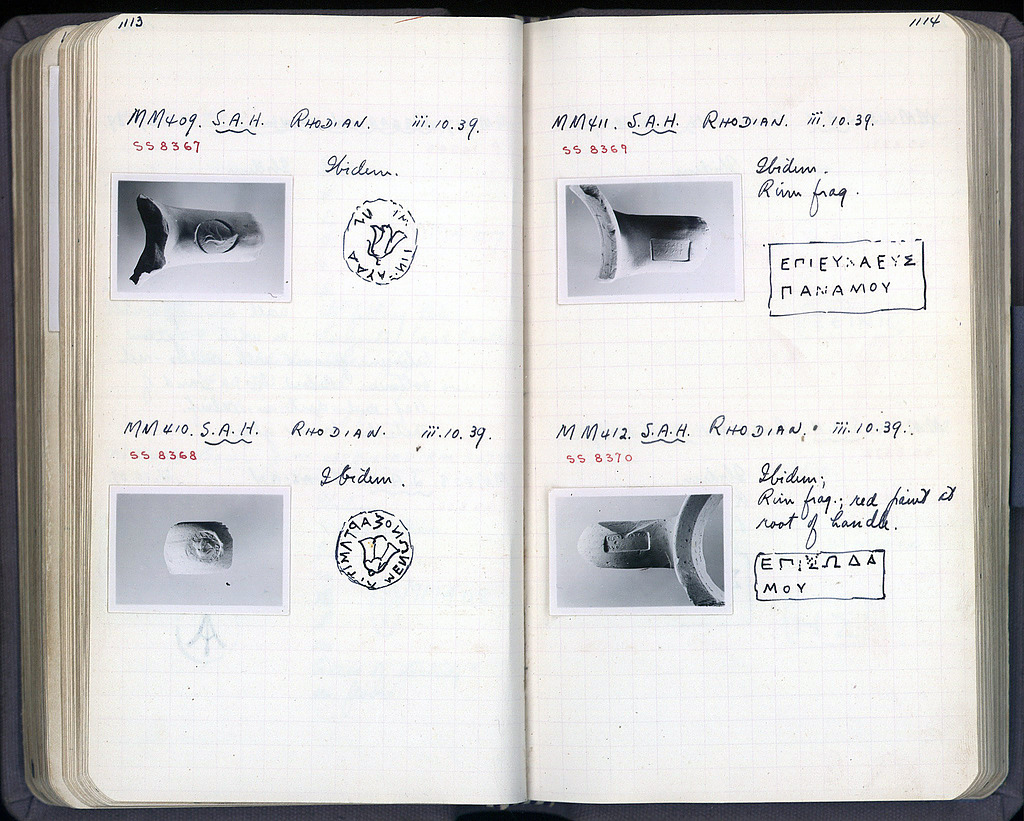 1113
MM409. S.A.H. RHODIAN. iii.10.39.
SS 8367
Ibidem.
MM410. S.A.H. RHODIAN. iii.10.39.
SS 8368
Ibidem.
1114
MM411. S.A.H. RHODIAN. iii.10.39.
SS 8369
Ibidem.
Rim frag.
ΕΠΙΕΥΚΛΕΥΣ
ΠΑΝΑΜΟΥ
MM412. S.A.H. RHODIAN. iii.10.39.
SS 8370
Ibidem;
Rim frag.; red paint at
root of handle.
ΕΠΙΣΩΔΑ
ΜΟΥ